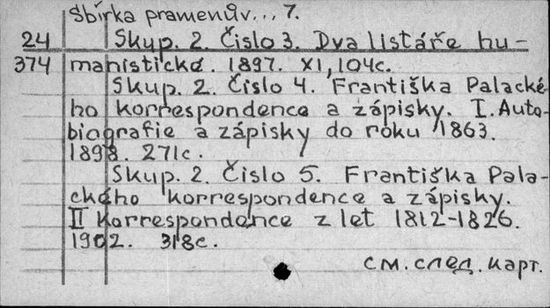 Sbírka pramenův... 7.
24 Skup. 2. Čislo 3. Dva listáře hu-
374 manistická. 1897. XI, 104c.
Skup. 2. Čislo 4. Františka Palacké-
ho korrespondence a zápisky. I. Auto-
biografie a zápisky do roku 1863.
1898. 271c.
Skup. 2. Čislo 5. Františka Pala-
ckého korrespondence a zápisky.
II Korrespondence z let 1812-1826.
1902. 318c.
см. след. карт.